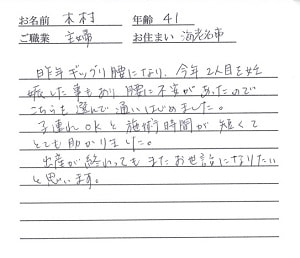 お名前 木村 年齢 41
ご職業 主婦 お住まい 海老名市
昨年ギックリ腰になり、今年2人目を妊
娠した事もあり腰に不安があったので
こちらを選んで通いはじめました。
子連れOKと施術時間が短くて
とても助かりました。
出産が終わってもまたお世話になりたい
と思います。